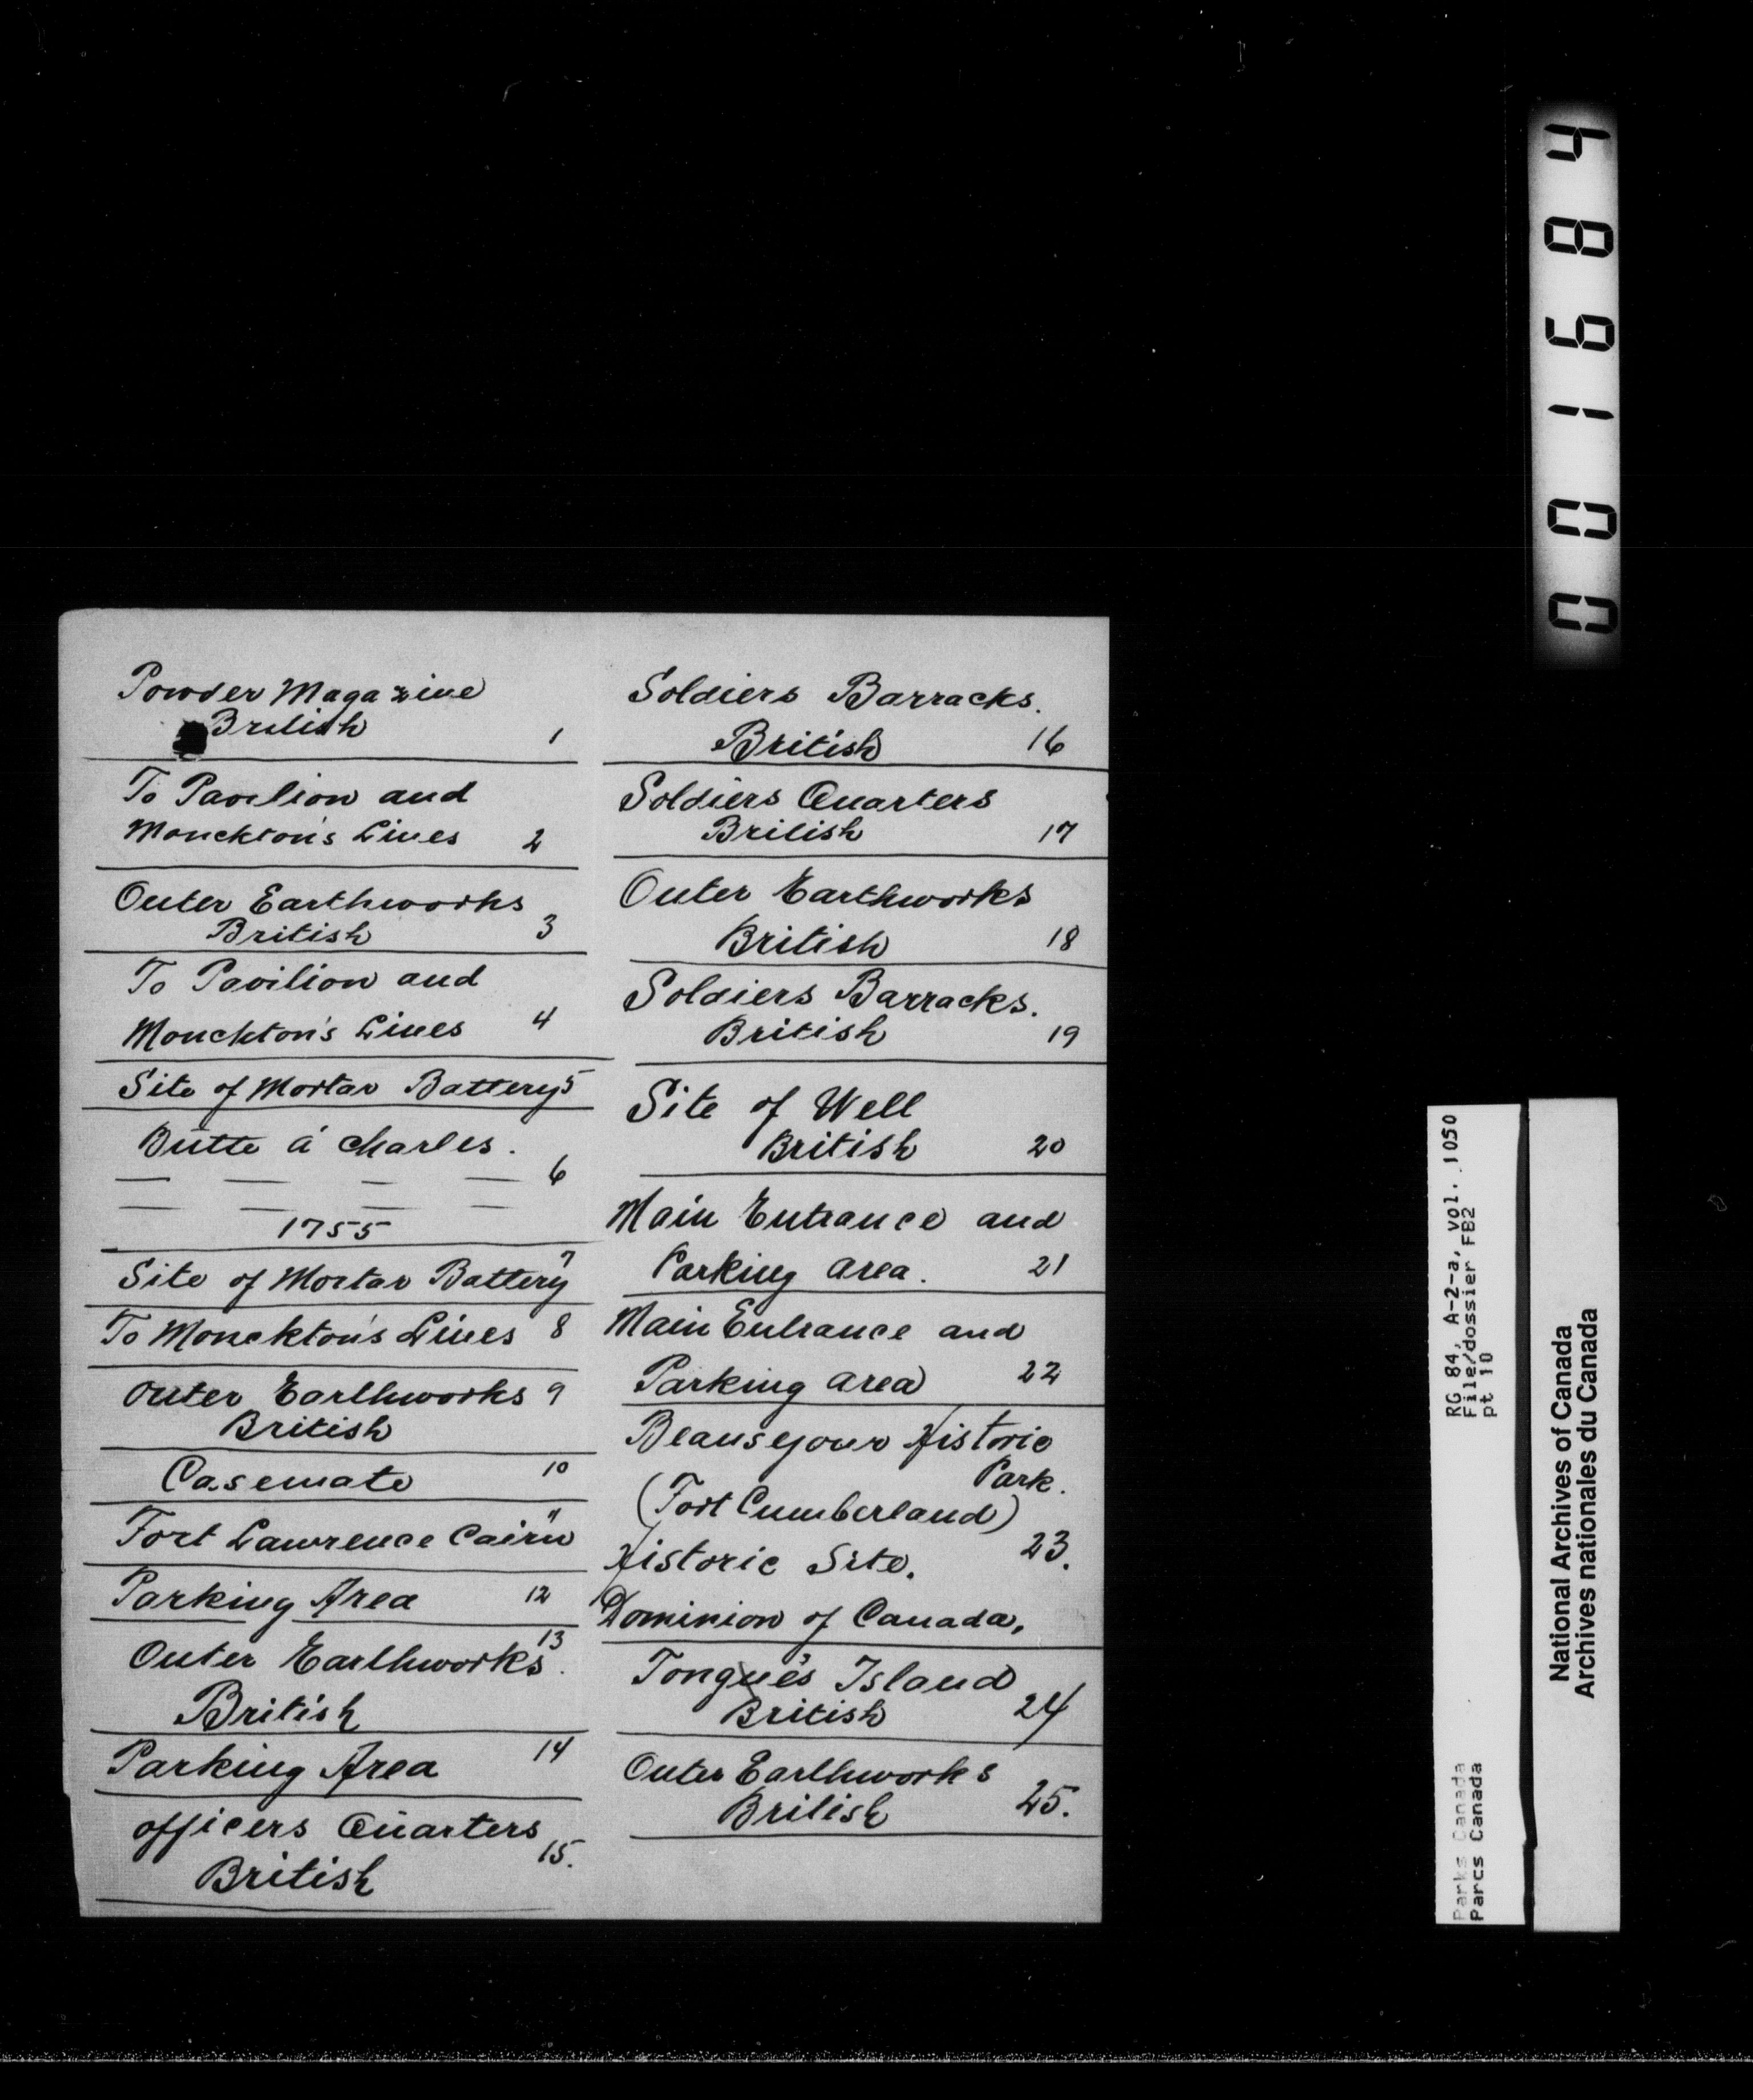 Powder Magazine
British 1
To Pavilion and
Monckton's Lines 2
Outer Earthworks
British 3
To Pavilion and
Monckton's Lines 4
Site of Mortar Battery 5
Butte á Charles.
— — — — 6
— — — —
1755
Site of Mortar Battery 7
To Monckton's Lines 8
Outer Earthworks 9
British
Casemate 10
Fort Lawrence Cairn 11
Parking Area 12
Outer Earthworks. 13
British
Parking Area 14
officers Quarters
British 15.
Soldiers Barracks.
British 16
Soldiers Quarters
British 17
Outer Earthworks
British 18
Soldiers Barracks.
British 19
Site of Well
British 20
Main Entrance and
Parking area. 21
Main Entrance and
Parking area 22
Beausejour Historic
Park.
(Fort Cumberland)
Historic Site. 23.
Dominion of Canada.
Tongue's Island
British 24
Outer Earthworks
British 25.
001684
RG 84, A-2-a, vol. 1050
File/dossier FB2
pt 10
Parks Canada
Parcs Canada
National Archives of Canada
Archives nationales du Canada